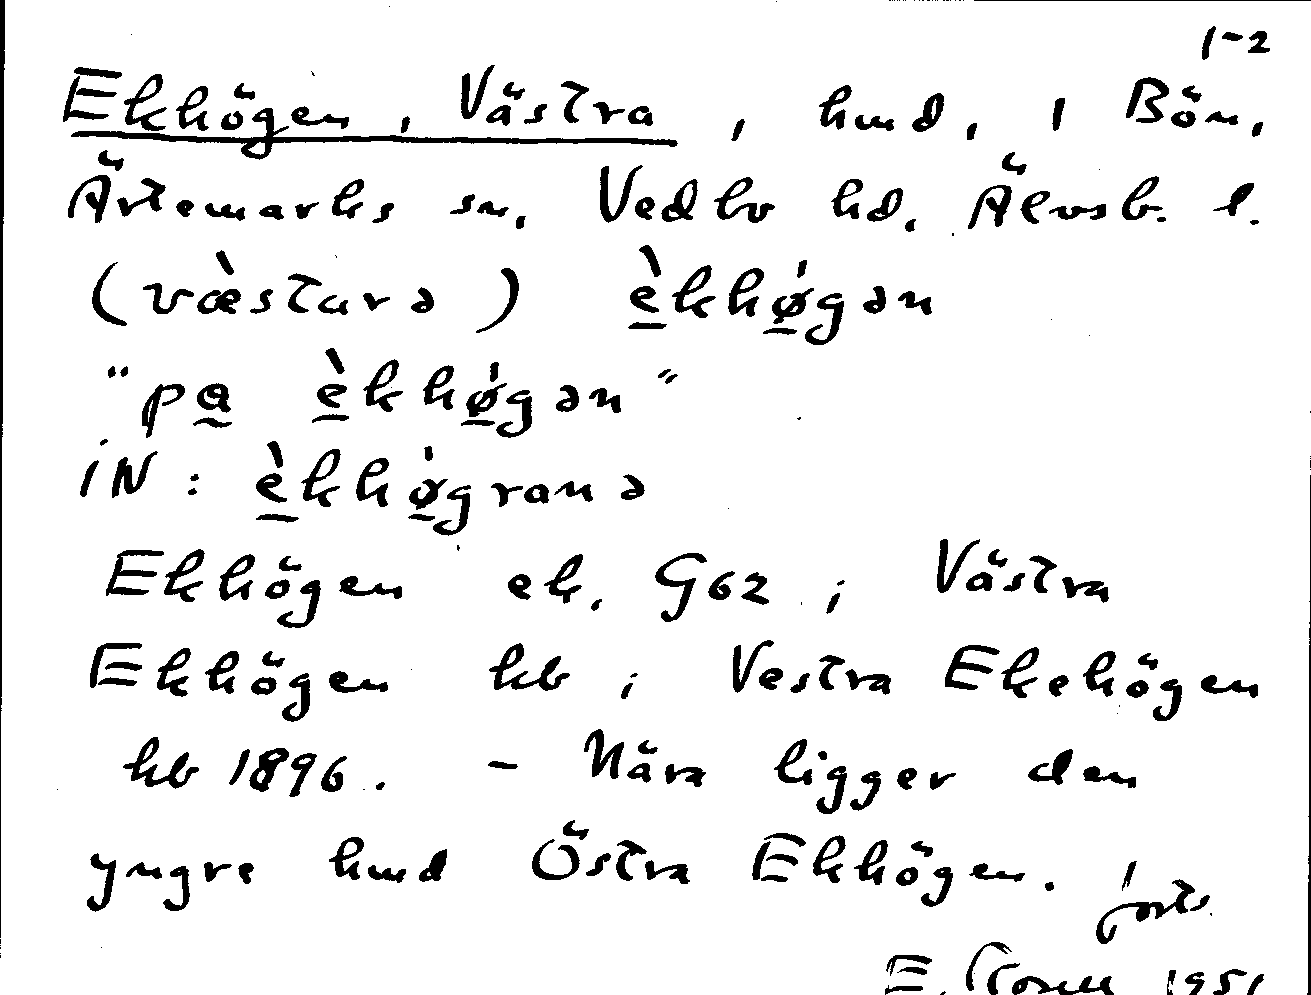 1-2
Ekhögen, Västra, hmd, i Bön,
Ärtemarks sn, Vedbo hd, Älvsb. l.
(væ̀stɑrə) èkhøgən
"pa èkhøgən"
iN: èkhøgranə
Ekhögen ek. G62; Västra
Ekhögen kb; Vestra Ekehögen
kb 1896. - Nära ligger den
yngre hmd Östra Ekhögen. forts
E. 1951